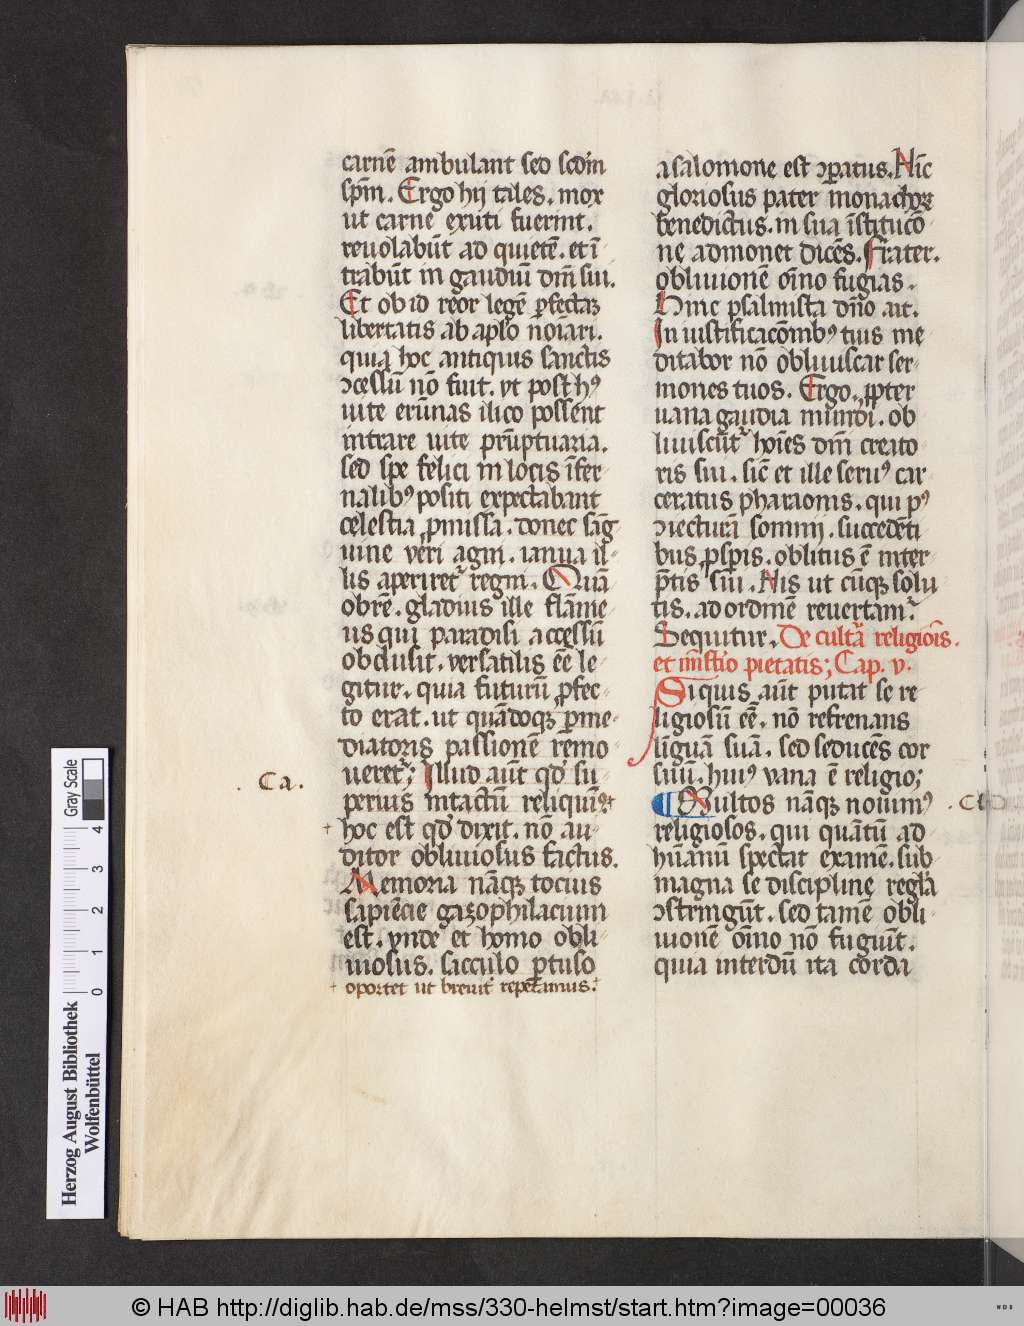 carnē ambulant sed scdm̄
sp̄m. Ergo hij tales. mox
ut carne exuti fuerint.
reuolabūt ad quietē. et ī
trabūt in gaudiū dn̄i sui.
Et ob id reor legē ꝑfectaꝫ
libertatis ab aplo noīari.
quia hoc antiquis sanctis
ↄcessū nō fuit. vt post hꝰ
uite erūnas ilico possent
intrare uite prūptuaria.
sed spe felici in locis īfer
nalibꝰ positi expectabant
celestia ꝓmissa. donec sāg
uine veri agni. ianua il
lis aperiretᷣ regni. Quā
obrē. gladius ille flāme
us qui paradisi accessū
obclusit. versatilis eē le
gitur. quia futurū ꝓfec
to erat. ut quādoqꝫ ꝑ me
diatoris passionē remo
ueretᷣ; Illud aūt qd̓ su
perius intactū reliquimꝰ
hoc est qd̓ dixit. nō au
ditor obliuiosus factus.
Memoria nāqꝫ tocius
sapiēcie gazophilacium
est. vnde et homo obli
uiosus. sacculo ꝑtuso
oportet ut breuitᷣ repetamus.
Ca.
a salomone est ↄꝑatus. Hīc
gloriosus pater monachoꝝ
benedictus. in sua īstitucō
ne admonet dicēs. Frater.
obliuionē oīno fugias.
Hinc psalmista dn̄o ait.
In iustificacōnibꝰ tuis me
ditabor nō obliuiscar ser
mones tuos. Ergo. ꝓpter
uana gaudia mundi. ob
liuiscūtᷣ hoīes dn̄i creato
ris sui. sic̄ et ille seruꝰ car
ceratus pharaonis. qui pꝰ
ↄiecturā somnij. succedēti
bus ꝓsꝑis. oblitus ē inter
p̄tis sui. His ut cūqꝫ solu
tis. ad ordinē reuertamᷣ.
Sequitur. De cultā religiōis.
et mīsteō pietatis; Cap. v.
Si quis aūt putat se re
ligiosū eē. nō refrenans
līguā suā. sed seducēs cor
suū. huiꝰ vana ē religio;
Multos nāqꝫ nouimꝰ
religiosos. qui quātū ad
hūanū spectat examē. sub
magna se discipline regla
ↄstringūt. sed tamē obli
uionē oīno nō fugiūt.
quia interdū ita corda
Herzog August Bibliothek
Wolfenbüttel
Gray Scale
0 1 2 3 4
© HAB http://diglib.hab.de/mss/330-helmst/start.htm?image=00036